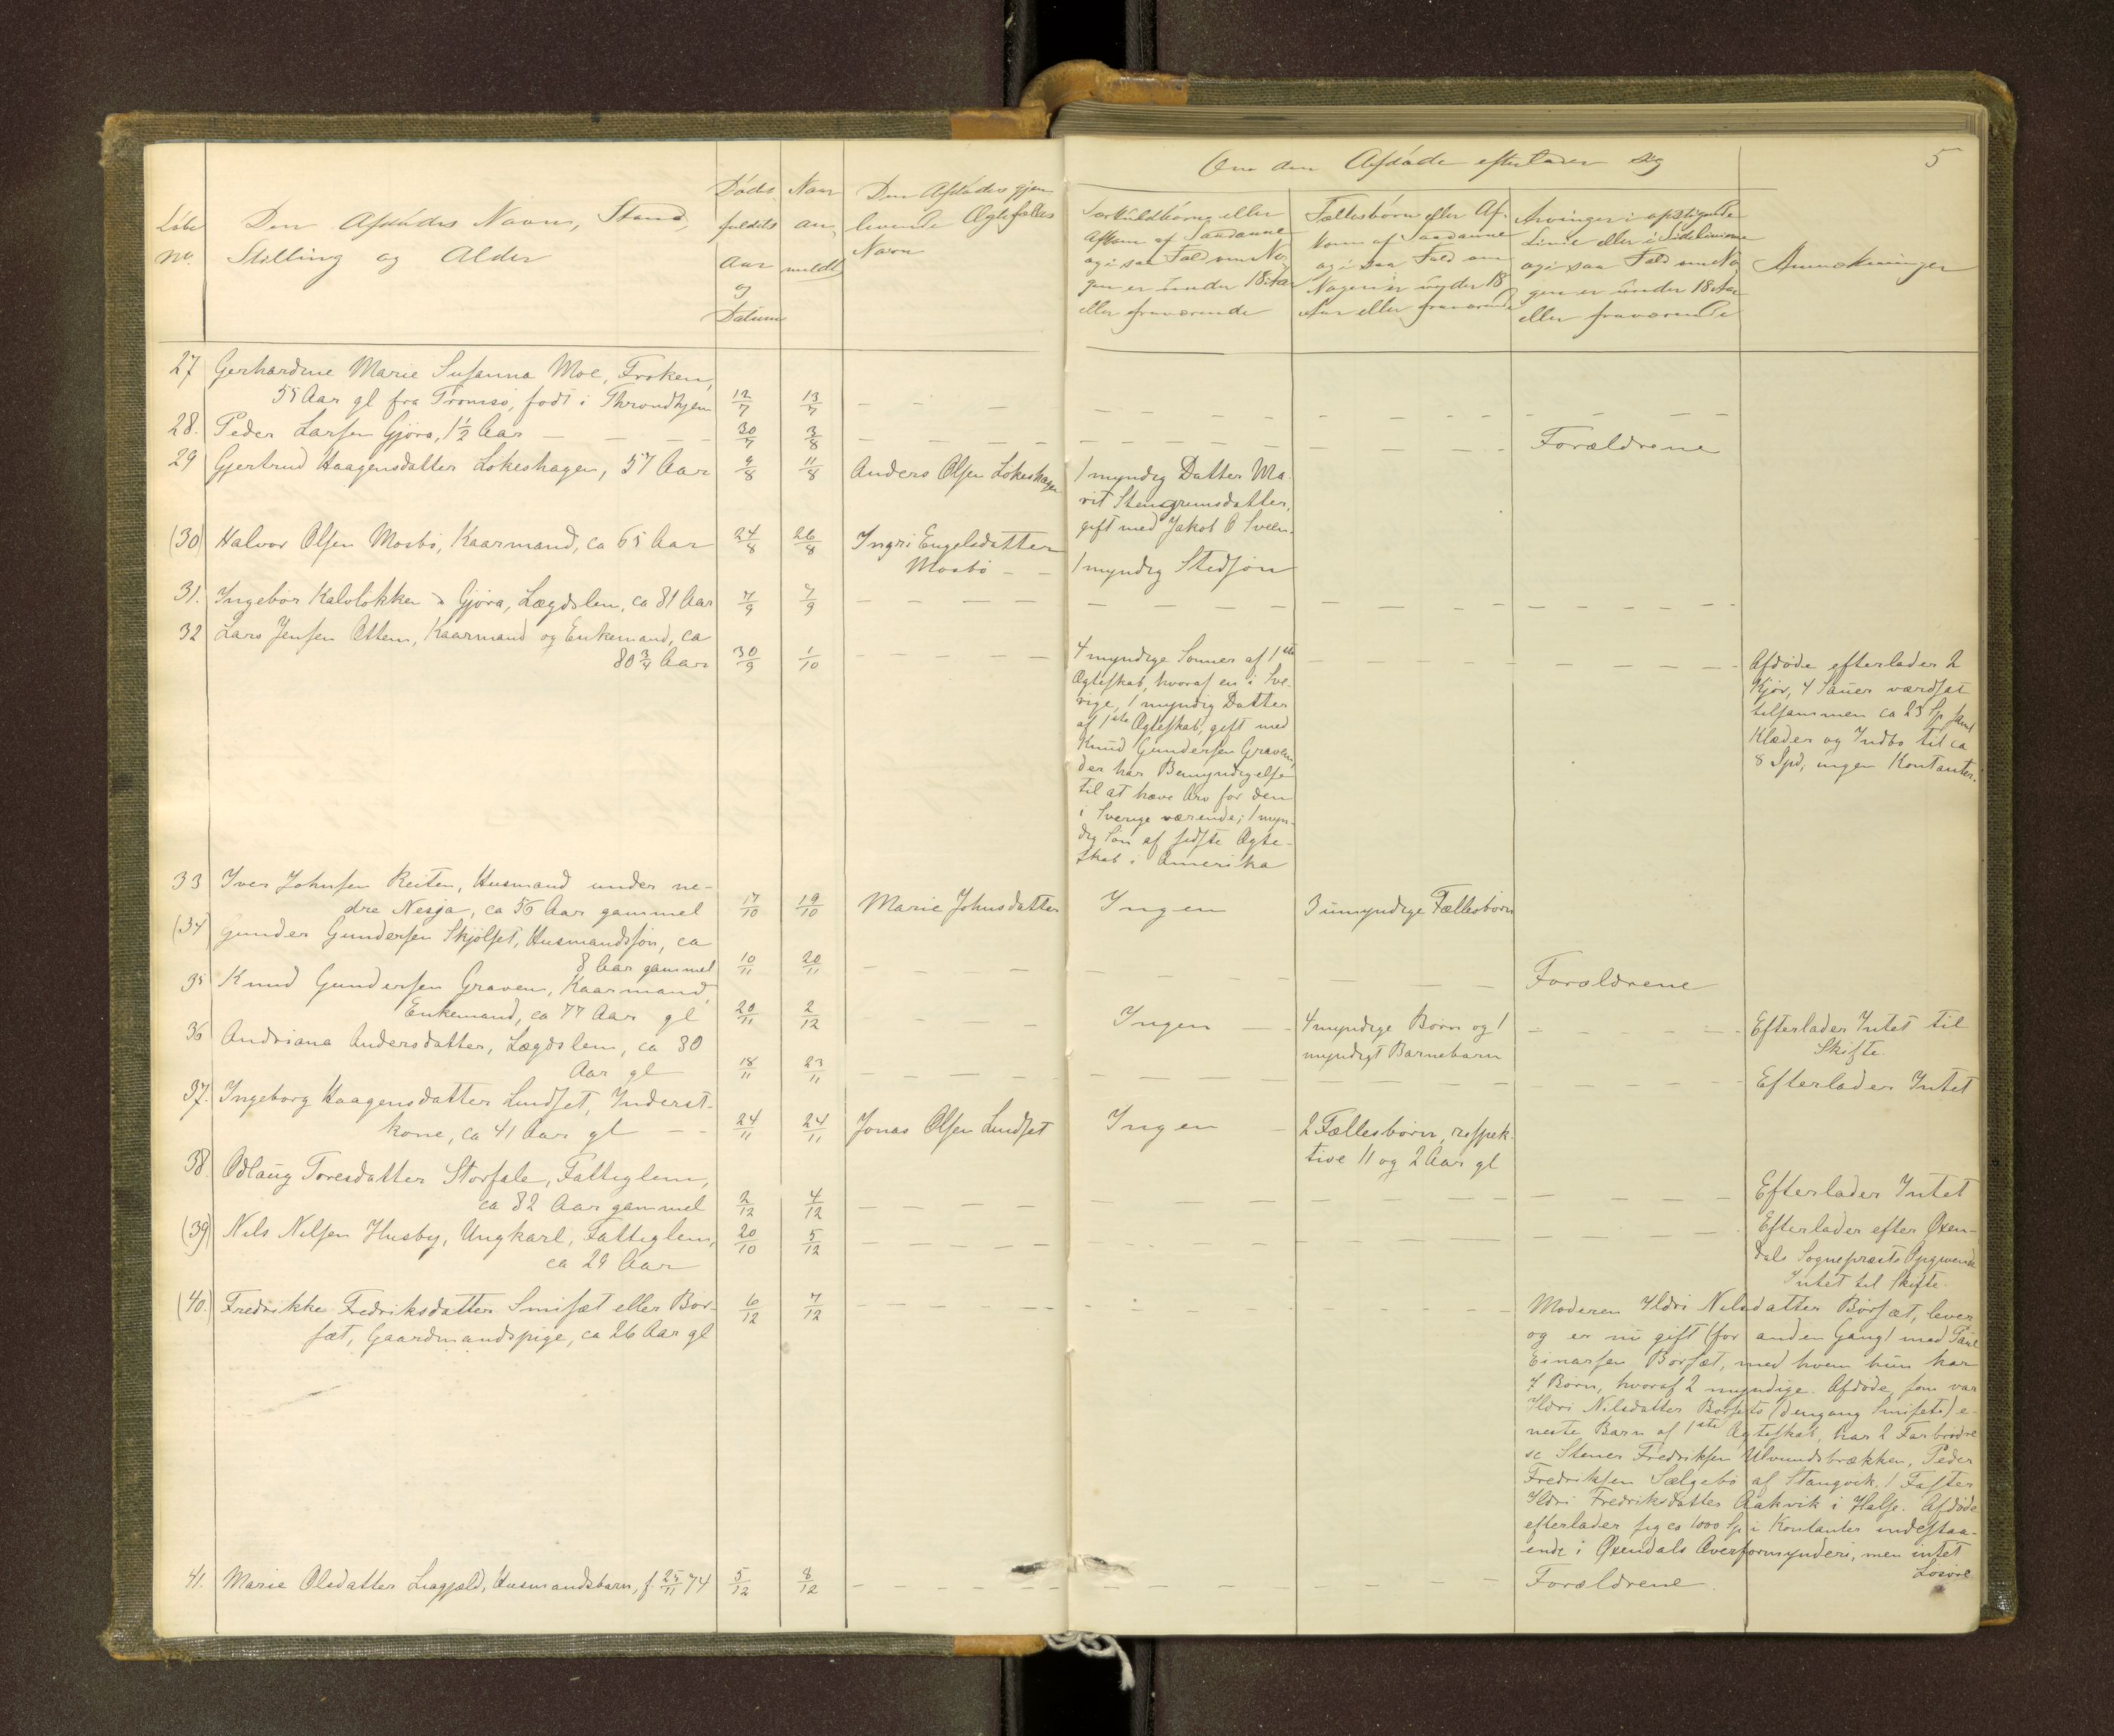 Om den Afdöde efterlader sig
5
Löbe
No.
Den Afdödes Navn, Stand,
Stilling og Alder
Döds
faldets
Aar
og
Datum
Naar
an-
meldt
Den Afdödes gjen
levende Ægtefælles
Navn
Særkuldbörn eller
Afkom af Saadanne
og i saa Fald om No
gen er under 18 Aar
eller fraværende
Fællesbörn eller Af-
kom af Saadanne
og i saa Fald om
Nogen er under 18
Aar eller fraværende
Arvinger i opstigende
Linie eller i Sidelinierne
og i saa Fald om No
gen er under 18 Aar
eller fraværende
Anmærkninger
27 Gerhardine Marie Susanna Moe, Frøken,
55 Aar gl fra Tromsø, født i Throndhjem 12/7 13/7 – – – – – –
28. Peder Larsen Gjøra, 1 1/2 Aar – – – 30/7 3/8 – – – – – – Forældrene
29 Gjertrud Haagensdatter Løkeshagen, 57 Aar 9/8 11/8 Anders Olsen Løkeshagen 1 myndig Datter Ma-
rit Stengrimsdatter,
gift med Jakob O Sveen.
(30) Halvor Olsen Mosbø, Kaarmand, ca 65 Aar 24/8 26/8 Ingri Engelsdatter
Mosbø – – 1 myndig Stedsøn
31. Ingebor Kalvløkken Gjøra, Lægdslem, ca 81 Aar 7/9 7/9 – – – – – –
32 Lars Jensen Ottem, Kaarmand og Enkemand, ca
80 3/4 Aar 30/9 1/10 – – – – 4 myndige Sønner af 1ste
Ægteskab, hvoraf en i Sve-
rige, 1 myndig Datter
af 1ste Ægteskab, gift med
Knud Gundersen Graven,
der har Bemyndigelse
til at hæve Arv for den
i Sverige værende; 1 myn-
dig Søn af sidste Ægte-
skab i Amerika
Afdøde efterlader 2
Kjør, 4 Sauer værdsat
tilsammen ca 23 Sp samt
Klæder og Indbo til ca
8 Spd, ingen Kontanter.
33 Iver Johnsen Reiten, Husmand under ne-
dre Nesja, ca 56 Aar gammel 17/10 19/10 Marie Johnsdatter Ingen 3 umyndige Fællesbørn
(34) Gunder Gundersen Skjølset, Husmandssøn, ca
8 Aar gammel 10/11 20/11 – – – – – – Forældrene
35 Knud Gundersen Graven, Kaarmand,
Enkemand, ca 77 Aar gl 20/11 2/12 – – – – Ingen – 4 myndige Børn og 1
myndigt Barnebarn
Efterlader Intet til
Skifte.
36 Andriana Andersdatter, Lægdslem, ca 30
Aar gl 18/11 23/11 – – – – – – Efterlader Intet
37. Ingeborg Haagensdatter Lundset, Inderst-
kone, ca 41 Aar gl – – 24/11 24/11 Jonas Olsen Lundset Ingen – 2 Fællesbørn, respek-
tive 11 og 2 Aar gl
38. Odlaug Toresdatter Storfale, Fattiglem,
ca 82 Aar gammel 2/12 4/12 – – – – – – Efterlader Intet
(39) Nils Nilsen Husby, Ungkarl, Fattiglem,
ca 29 Aar 20/10 5/12 – – – – – –
Efterlader efter Øxen-
dals Sognepræsts Opgivende
Intet til Skifte.
(40.) Fredrikke Fredriksdatter Smisæt eller Bor-
sæt, Gaardmandspige, ca 26 Aar gl 6/12 7/12 – – – – – –
Moderen Ildri Nilsdatter Børsæt, lever
og er nu gift (for anden Gang) med Paul
Einarsen Børsæt, med hvem hun har
7 Børn, hvoraf 2 myndige. Afdøde, som var
Ildri Nilsdatter Børsets (dengang Smisets) e-
neste Barn af 1ste Ægteskab, har 2 Farbrødre
sc Stener Fredriksen Ulvundsbrækken, Peder
Fredriksen Sælgebø af Stangvik, 1 Faster
Ildri Fredriksdatter Aakvik i Halse. Afdøde
efterlader sig ca 1000 Sp i Kontanter indestaa-
ende i Øxendals Overformynderi, men intet
Løsøre
41. Marie Olsdatter Liagjæld, Husmandsbarn, f. 25/11 74 5/12 8/12 – – – – – – Forældrene.